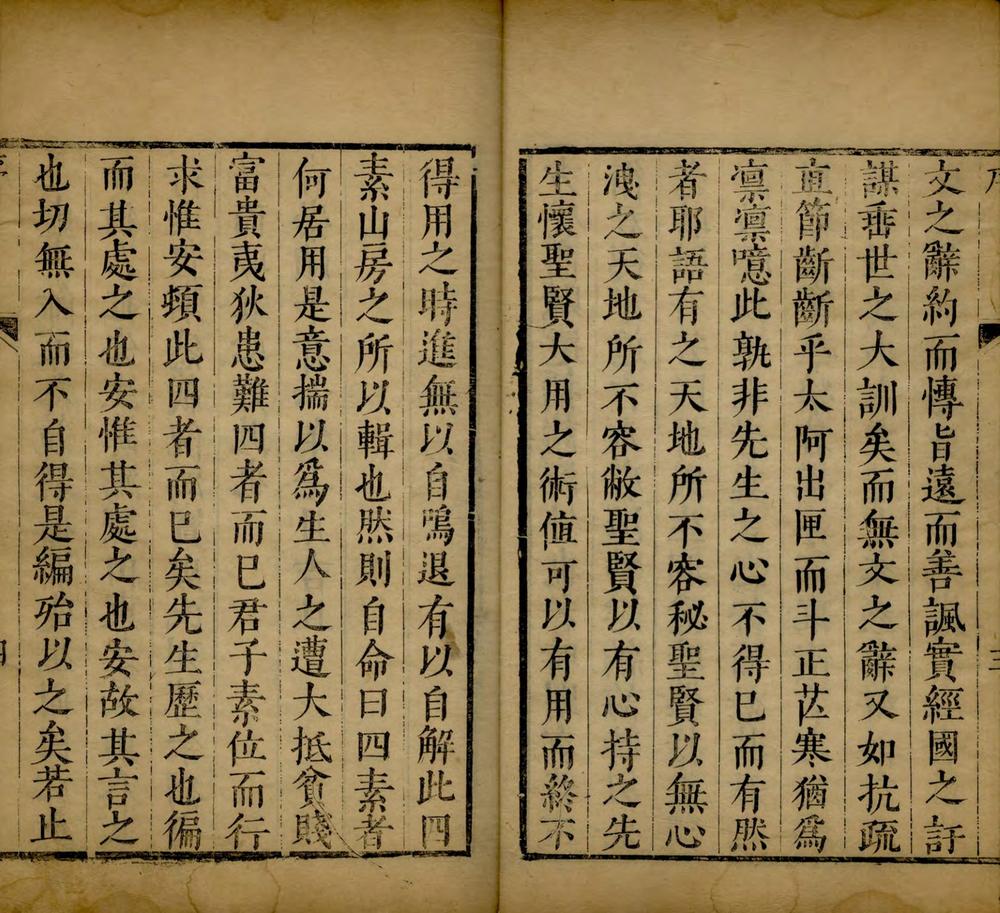 文之辭約而慱旨遠而善諷實經國之訏
謀垂世之大訓矣而無文之辭又如抗疏
直節齗齗乎太阿出匣而斗正芒寒猶爲
凛凛噫此孰非先生之心不得已而有然
者耶語有之天地所不容秘聖賢以無心
洩之天地所不容敝聖賢以有心持之先
生懷聖賢大用之術值可以有用而終不
得用之時進無以自鳴退有以自解此四
素山房之所以輯也然則自命曰四素者
何居用是意揣以爲生人之遭大抵貧賤
富貴夷狄患難四者而已君子素位而行
求惟安頓此四者而已矣先生歷之也徧
而其處之也安惟其處之也安故其言之
也切無入而不自得是編殆以之矣若止